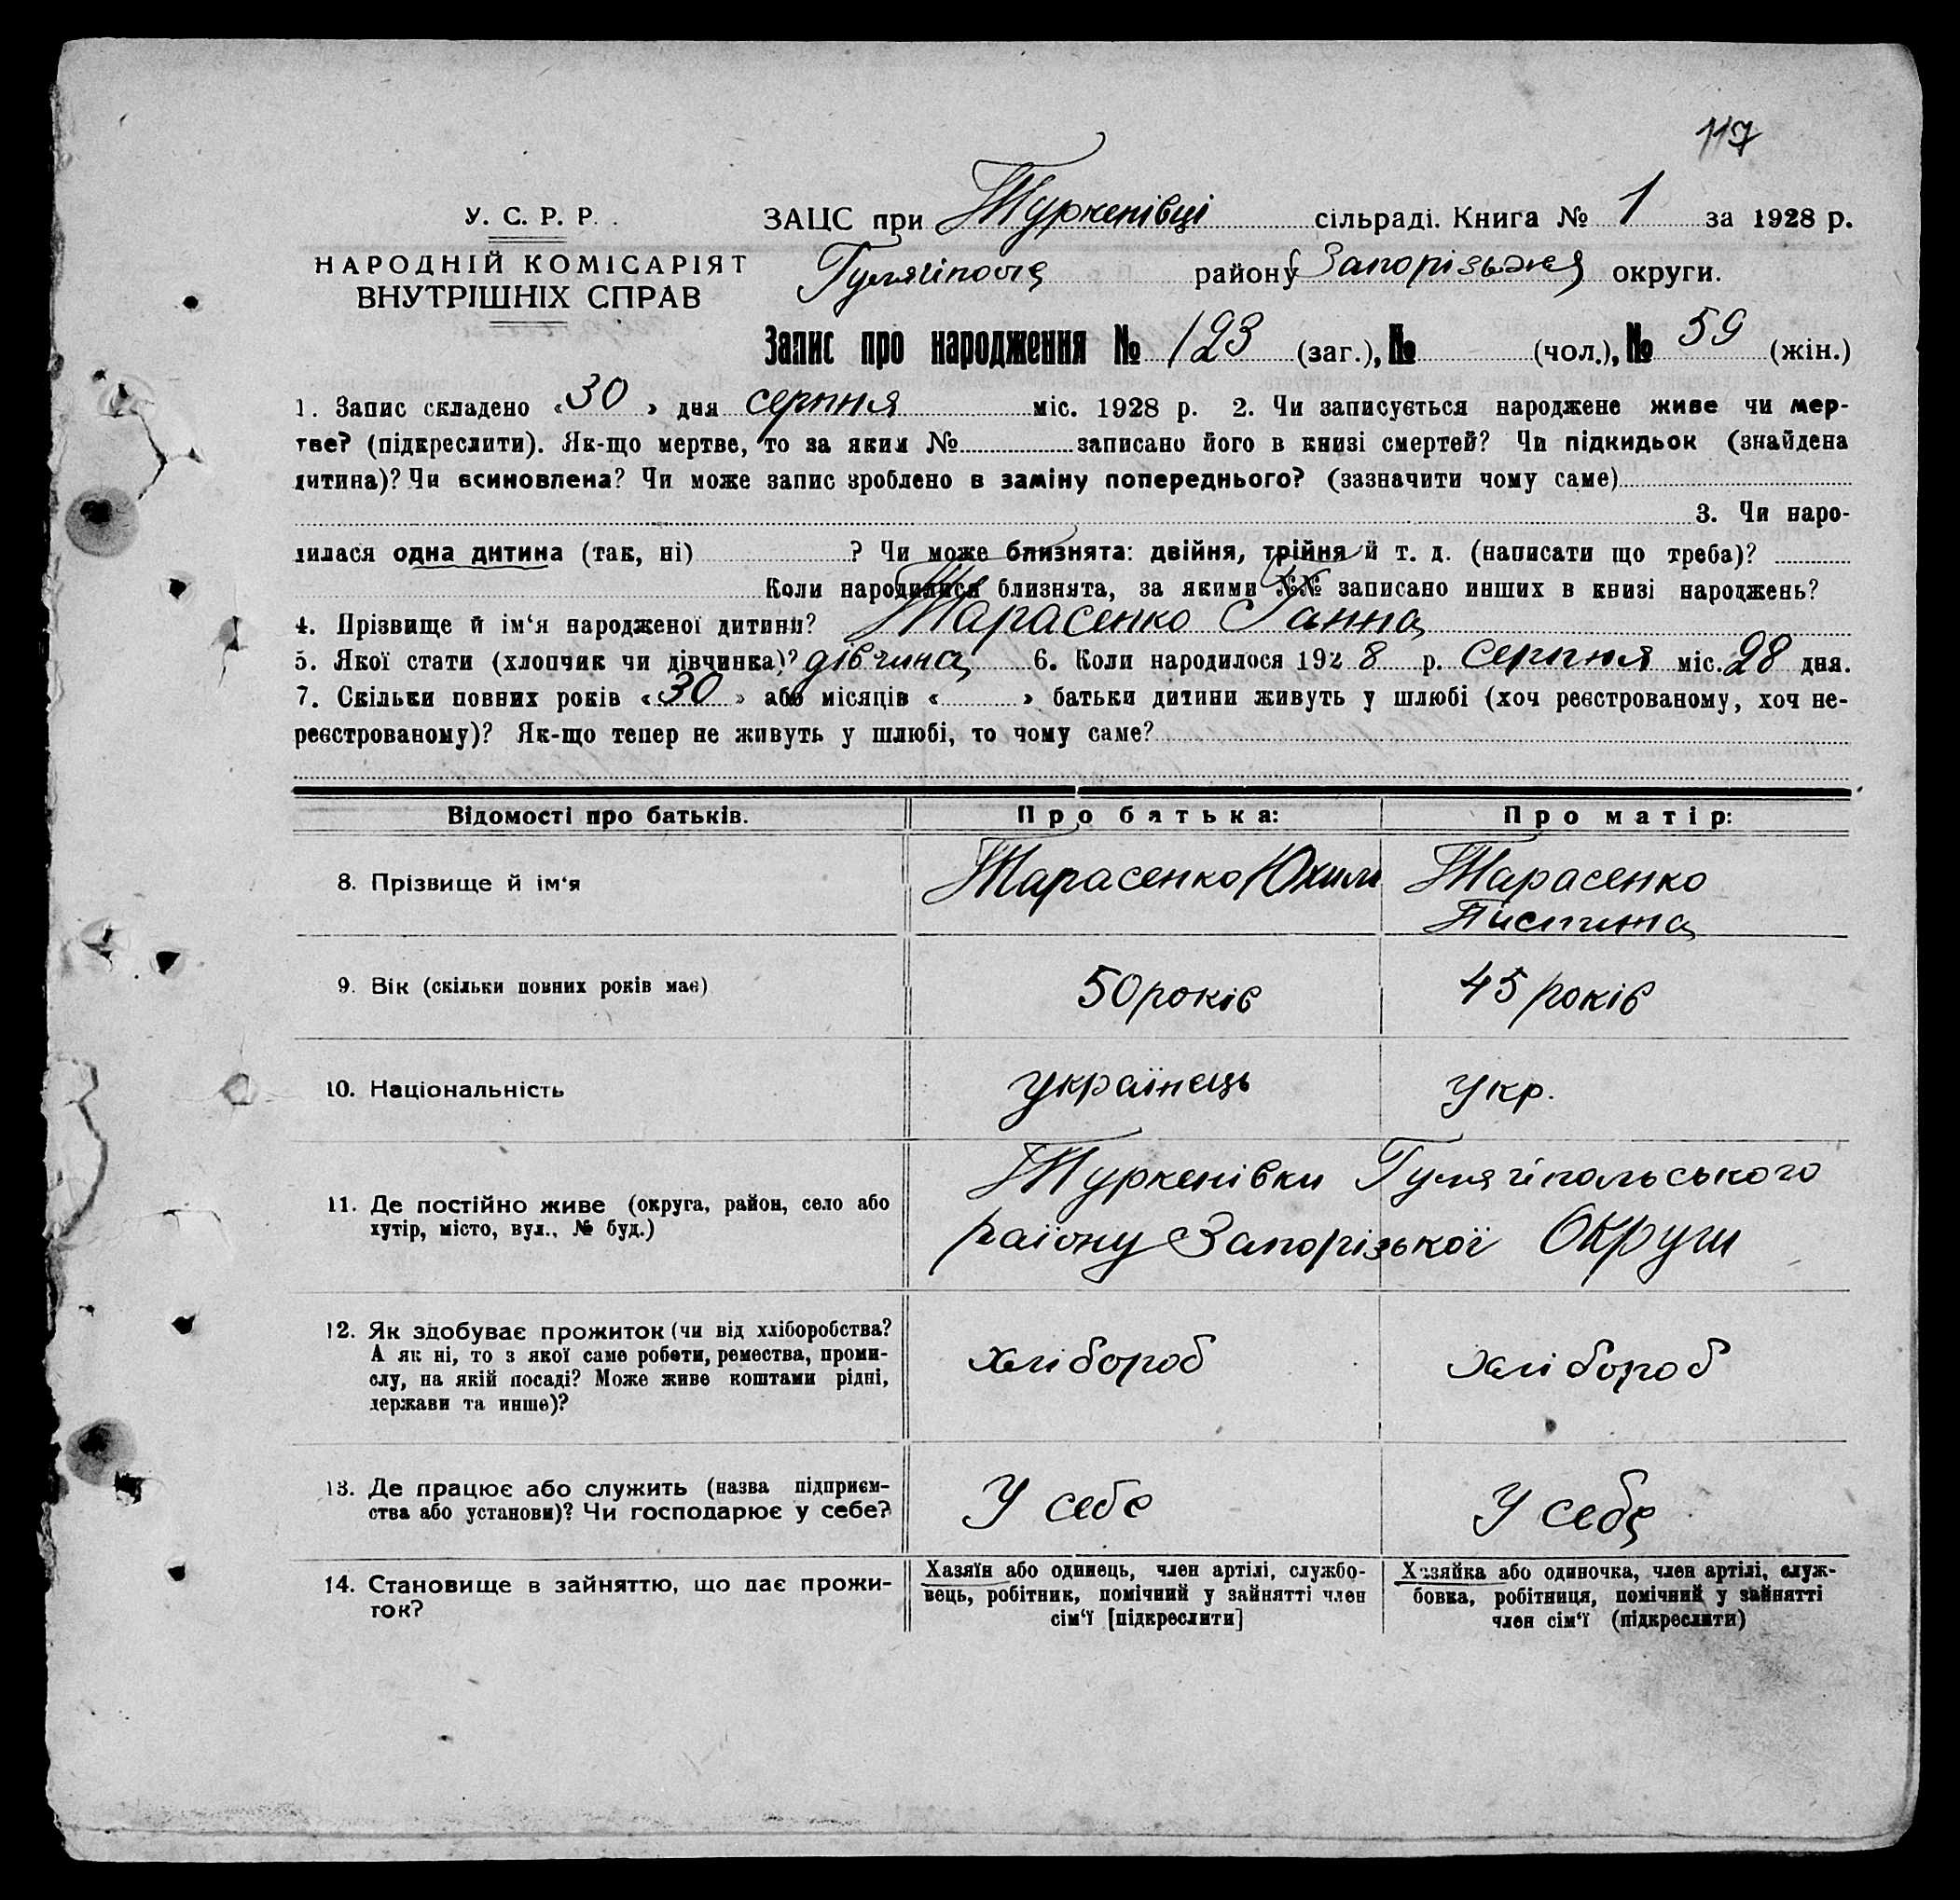 117
У. С. Р. Р.
НАРОДНІЙ КОМІСАРІЯТ
ВНУТРІШНІХ СПРАВ
ЗАЦС при Туркенівці сільраді. Книга № 1 за 1928 р.
Гуляйполе району Запорізька округи.
Запис про народження № 123 (заг.), № (чол.), № 59 (жін.)
1. Запис складено « 30 » дня серпня міс. 1928 р. 2. Чи записується народжене живе чи мер-
тве? (підкреслити). Як-що мертве, то за яким № записано його в книзі смертей? Чи підкидьок (знайдена
дитина)? Чи всиновлена? Чи може запис зроблено в заміну попереднього? (зазначити чому саме)
3. Чи наро-
дилася одна дитина (так, ні) ? Чи може близнята: двійня, трійня й т. д. (написати що треба)?
Коли народилися близнята, за якими №№ записано инших в книзі народжень?
4. Прізвище й ім‘я народженої дитини? Тарасенко Ганна
5. Якої стати (хлопчик чи дівчинка)? дівчина 6. Коли народилося 192 8 р. серпня міс. 28 дня.
7. Скільки повних років « 30 » або місяців « » батьки дитини живуть у шлюбі (хоч реєстрованому, хоч не-
реєстрованому)? Як-що тепер не живуть у шлюбі, то чому саме?
Відомості про батьків. Про батька: Про матір:
8. Прізвище й ім‘я Тарасенко Юхим Тарасенко
Пистина
9. Вік (скільки повних років має) 50 років 45 років
10. Національність українець укр.
11. Де постійно живе (округа, район, село або
хутір, місто, вул., № буд.)
Туркенівки Гуляйпольського
району Запорізької Округи
12. Як здобуває прожиток (чи від хліборобства?
А як ні, то з якої саме роботи, ремества, проми-
слу, на якій посаді? Може живе коштами рідні,
держави та инше)?
хлібороб хлібороб
13. Де працює або служить (назва підприєм-
ства або установи)? Чи господарює у себе?
У себе У себе
14. Становище в зайняттю, що дає прожи-
ток?
Хазяїн або одинець, член артілі, службо-
вець, робітник, помічний у зайнятті член
сім‘ї [підкреслити]
Хазяйка або одиночка, член артілі, служ-
бовка, робітниця, помічний у зайнятті
член сім‘ї (підкреслити)